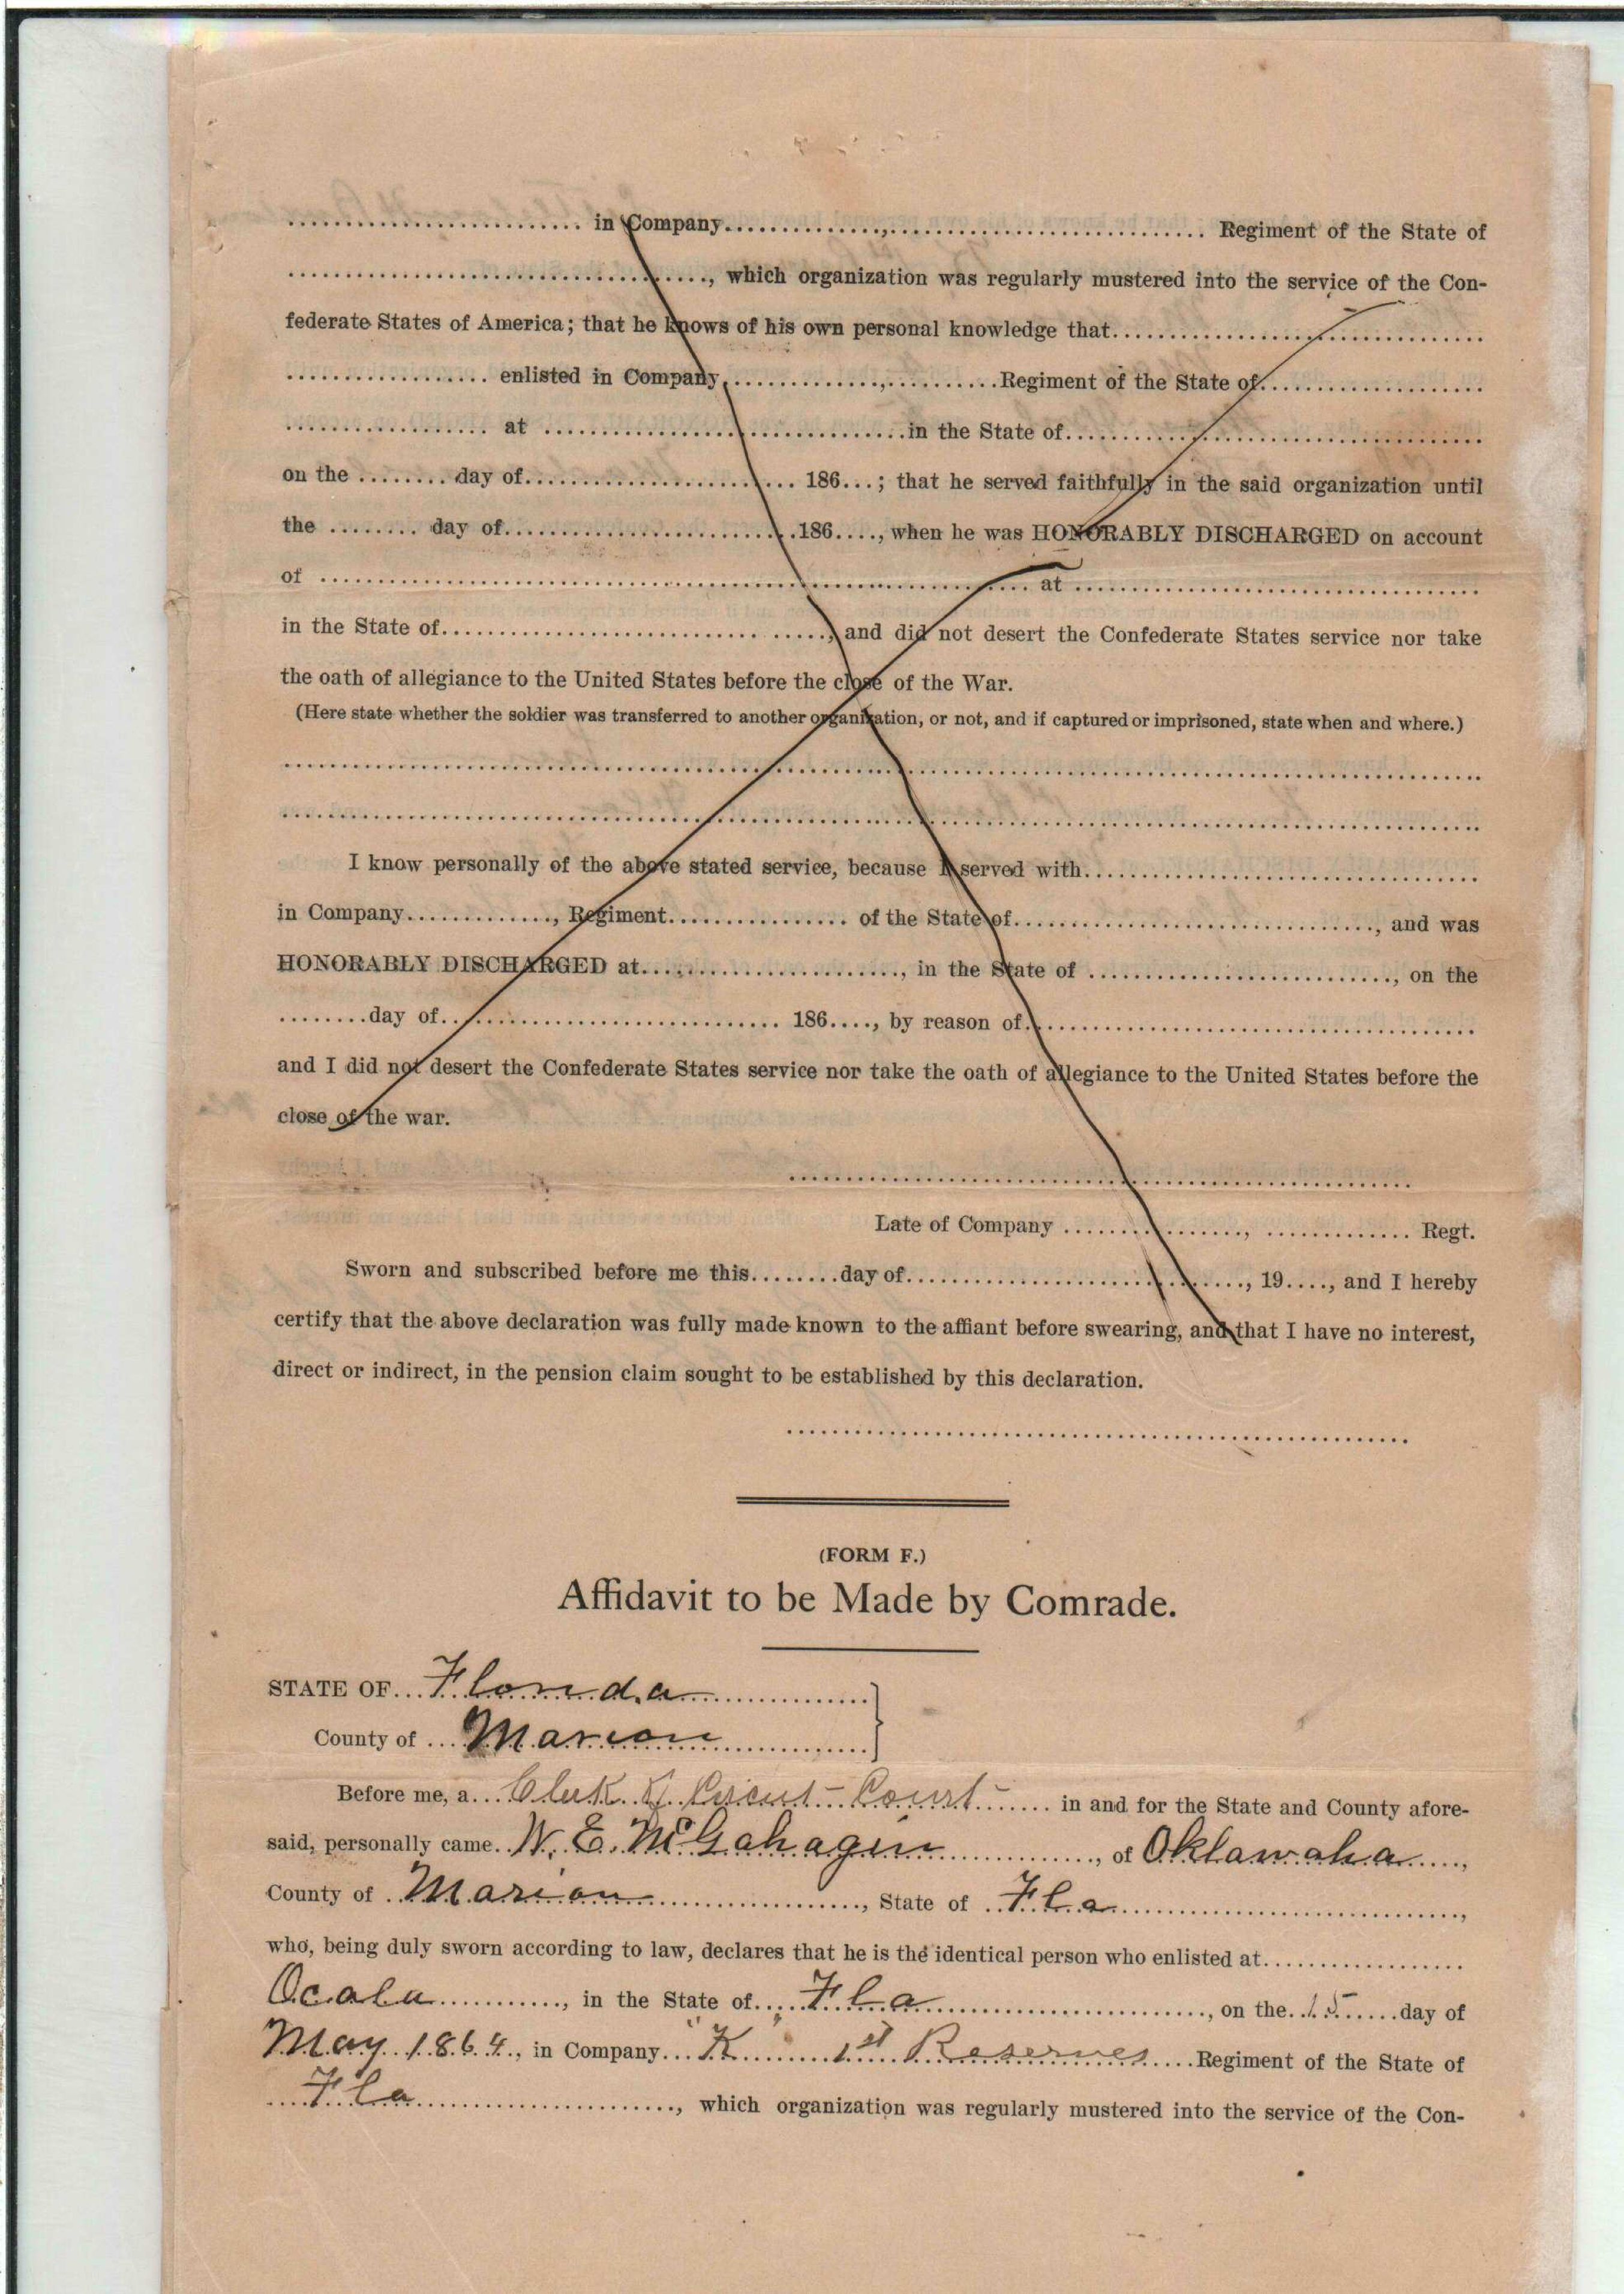 .......................... in Company..............,............................ Regiment of the State of
......................................, which organization was regularly mustered into the service of the Con-
federate States of America; that he knows of his own personal knowledge that.................................
.................. enlisted in Company..............,..........Regiment of the State of....................
.................. at ................................in the State of.....................................
on the ........ day of........................ 186...; that he served faithfully in the said organization until
the ........ day of..........................186...., when he was HONORABLY DISCHARGED on account
of ................................................................ at ....................................
in the State of................................., and did not desert the Confederate States service nor take
the oath of allegiance to the United States before the close of the War.
(Here state whether the soldier was transferred to another organization, or not, and if captured or imprisoned, state when and where.)
..........................................................................................................
..........................................................................................................
I know personally of the above stated service, because I served with...................................
in Company............., Regiment................ of the State of................................, and was
HONORABLY DISCHARGED at......................., in the State of ..........................., on the
........day of.............................. 186...., by reason of........................................
and I did not desert the Confederate States service nor take the oath of allegiance to the United States before the
close of the war.
........................................................
Late of Company ................, ............. Regt.
Sworn and subscribed before me this........day of.............................., 19...., and I hereby
certify that the above declaration was fully made known to the affiant before swearing, and that I have no interest,
direct or indirect, in the pension claim sought to be established by this declaration.
........................................................
(FORM F.)
Affidavit to be Made by Comrade.
STATE OF... Florida ................
County of ... Marion ..............
Before me, a... Clerk of Circuit Court ...... in and for the State and County afore-
said, personally came.. W. E. McGahagin .............., of Oklawaha .....,
County of .. Marion ..................., State of .. Fla ...............................,
who, being duly sworn according to law, declares that he is the identical person who enlisted at..................
Ocala ..........., in the State of.... Fla ........................., on the.. 15 ..... day of
May 1864., in Company... "K" ....... 1st Reserves .... Regiment of the State of
.... Fla ........................, which organization was regularly mustered into the service of the Con-